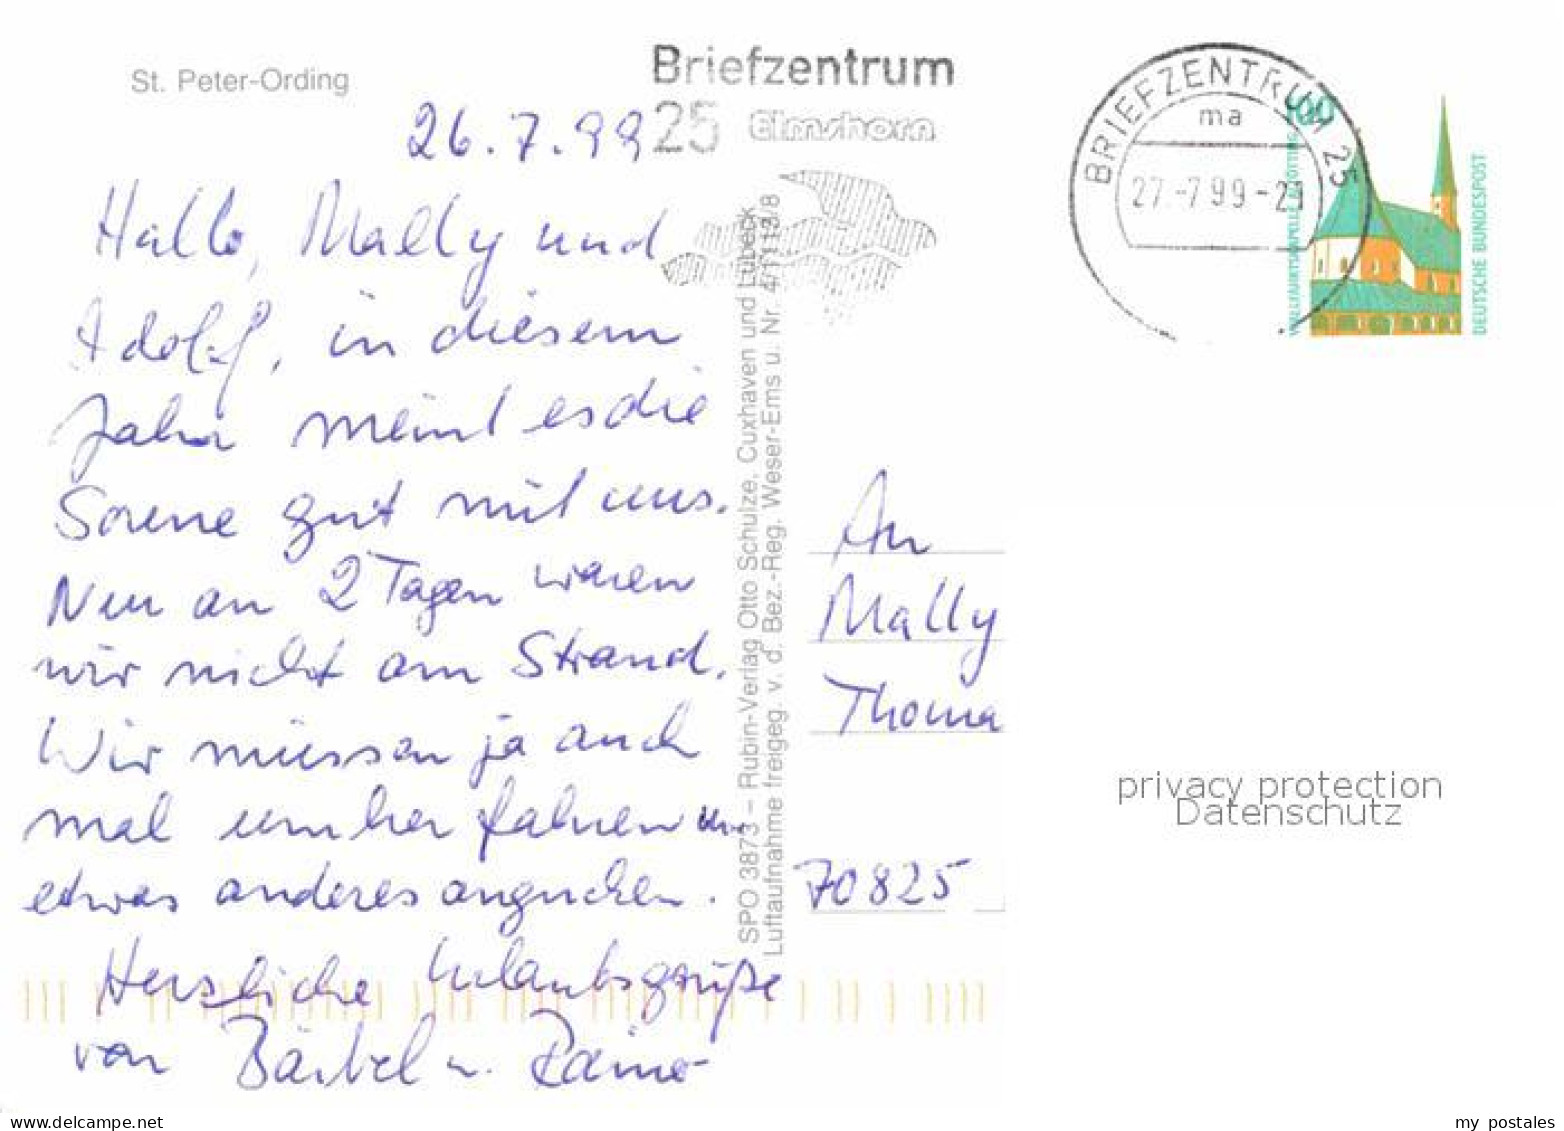 St. Peter-Ording
Briefzentrum
25 Elmshorn
BRIEFZENTRUM 25
ma
27.-7.99-21
WALLFAHRTSKAPELLE ALTÖTTING
DEUTSCHE BUNDESPOST
26.7.99
Hallo, Mally und
Adolf, in diesem
Jahr meint es die
Sonne gut mit uns.
Nur an 2 Tagen waren
wir nicht am Strand.
Wir müssen ja auch
mal umher fahren um
etwas anderes angucken.
Herzliche Urlaubsgrüße
von Bärbel u. Raino
SPO 3873 – Rubin-Verlag Otto Schulze, Cuxhaven und Lübeck
Luftaufnahme freigeg. v. d. Bez.-Reg. Weser-Ems u. Nr. 4/1113/8
An
Mally
Thoma
70825
privacy protection
Datenschutz
delcampe.net
my postales